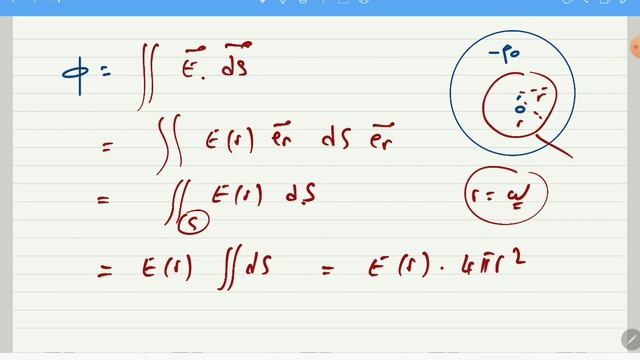 ϕ = ∬ E⃗ . dS⃗
= ∬ E(r) e⃗r dS e⃗r
= ∬S E(r) dS
= E(r) ∬ dS = E(r) . 4πr²
-ρ0
r
O
r